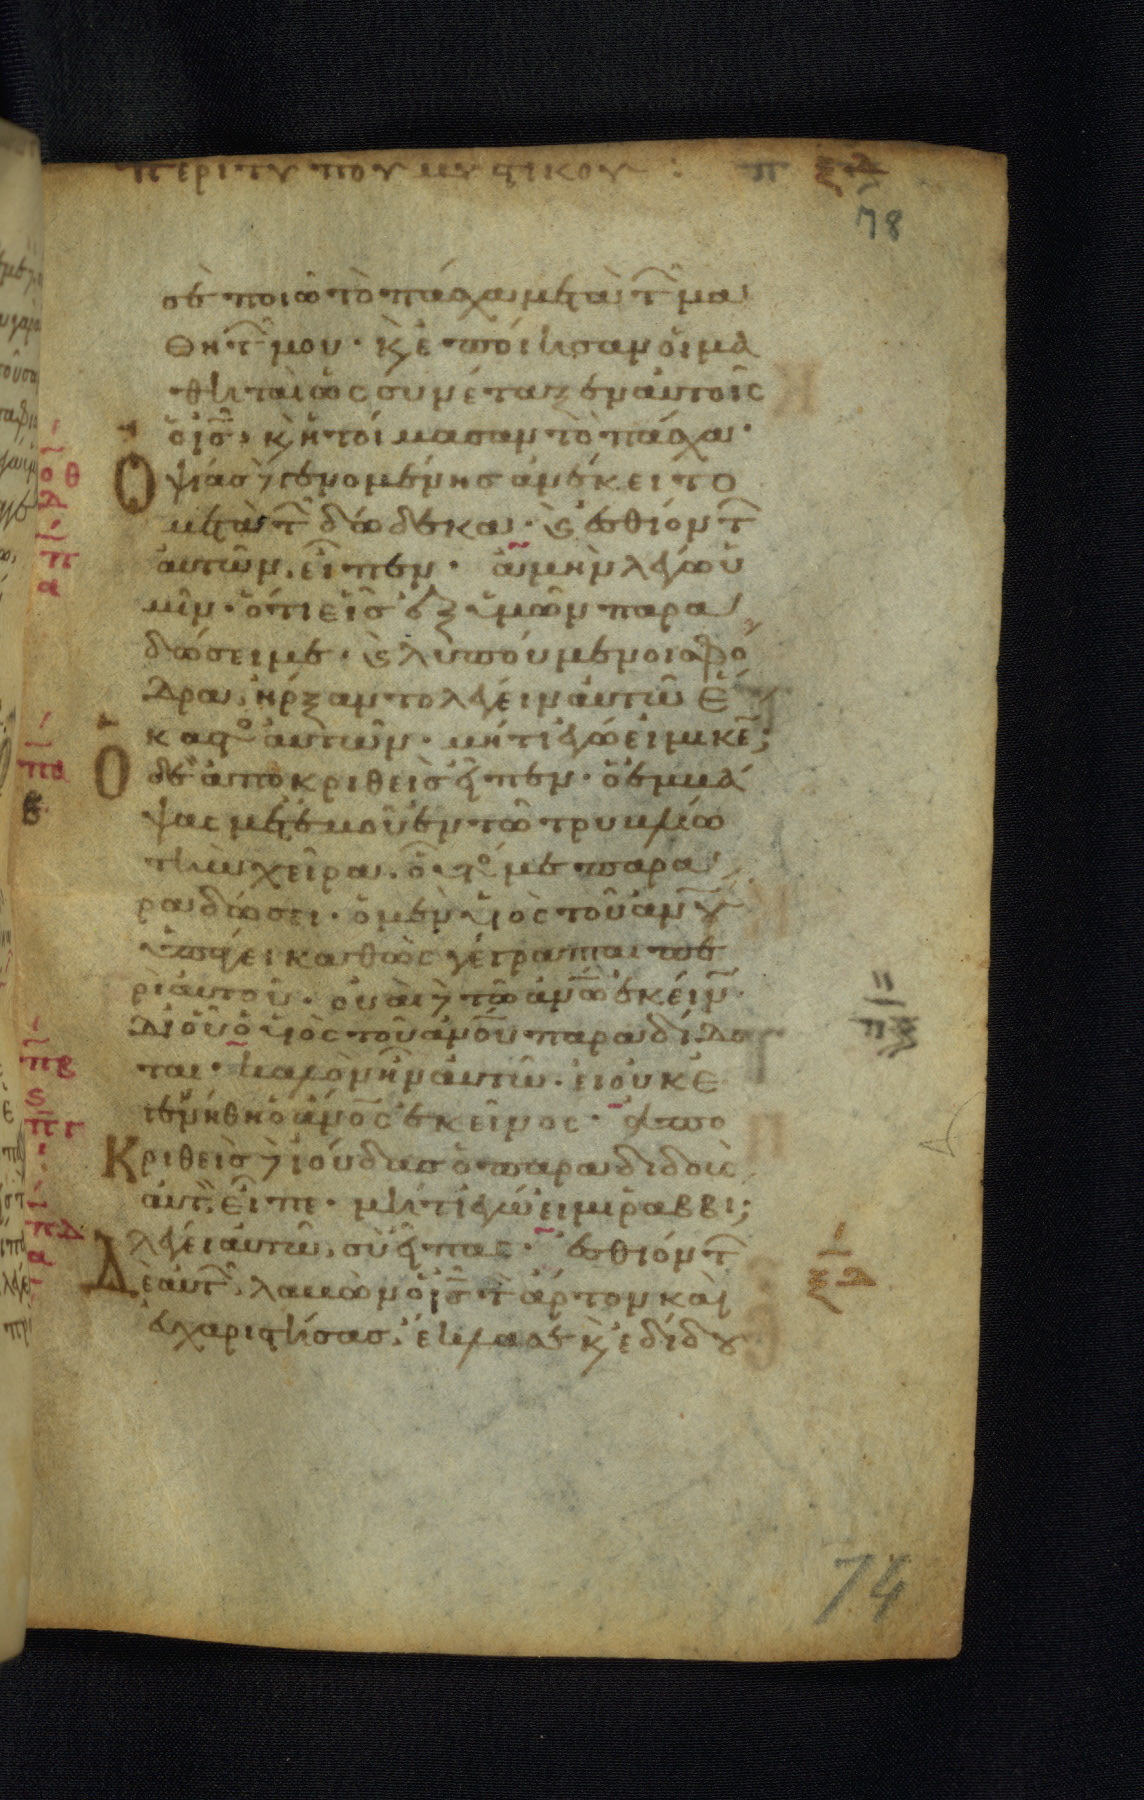 περι τυ που μυστικου : π ξδ
78
σὲ ποιῶ τὸ πάσχα μετὰ τ̑ μα
θητ̑ μου · κ̀ ἐποίησαν οἱ μα
θηταὶ ὡς συνέταξεν αὐτοῖς
ὁ ἰς̄ · κ̀ ἡτοίμασαν τὸ πάσχα ·
Ὀψίας δὲ γενομένης ἀνέκειτο
μετὰ τ̑ δώδεκα · κ̀ ἐσθιόντ̑
αὐτῶν, εἶπεν · ἀμὴν λέγω ὑ
μῖν · ὅτι εἷς ἐξ ὑμῶν παρα
δώσει με · κ̀ λυπούμενοι σφό
δρα, ἤρξαντο λέγειν αὐτῶ ἕ
καστος αὐτῶν · μήτι ἐγώ εἰμι κε̄;
Ὁ δὲ ἀποκριθεὶς εἶπεν · ὁ ἐμβά
ψας μετ' ἐμοῦ ἐν τῶ τρυβλίω
τὴν χεῖρα, οὗτός με παρα
ραδώσει · ὁ μὲν υἱὸς τοῦ ἀνου
ὑπάγει καθὼς γέγραπται πε
ρὶ αὐτοῦ · οὐαὶ δὲ τῶ ἀνω̄ ἐκείν̄
δι' οὗ ὁ υἱὸς τοῦ ἀνου παραδίδο
ται · καλὸν ἦν αὐτῶ, εἰ οὐκ ἐ
γενήθη ὁ ἀνος ἐκεῖνος · ἀπο
Κριθεὶς δὲ ἰούδας ὁ παραδιδοὺς
αὐτὸν, εἶπε · μήτι ἐγώ εἰμι ῥαββι;
λέγει αὐτῶ, σὺ εἶπας · ἐσθιόντ̑
Δὲ αὐτ̑, λαβὼν ὁ ἰς̄ τὸν ἄρτον καὶ
εὐχαριστήσας, ἔκλασε κ̀ ἐδίδου
οθ
δ
π
α
πα
πβ
πγ
πδ
α
π
ξδ
74